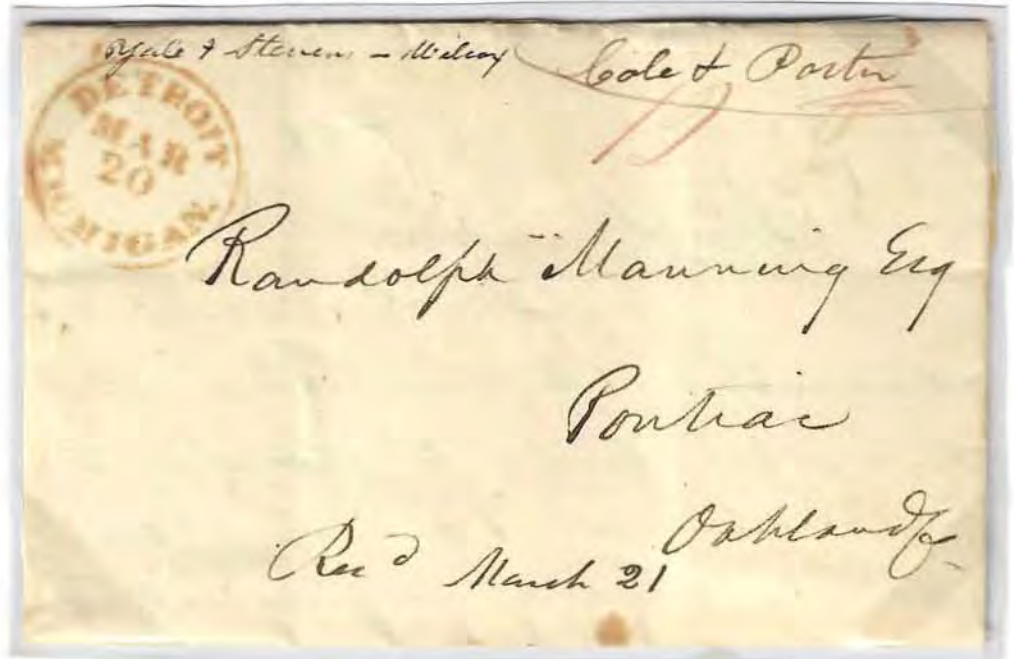 Yale & Stevens - Wilcox
Cole & Porter
DETROIT
MAR
20
MICHIGAN.
Randolph Manning Esq
Pontiac
Oakland Co
Recd March 21